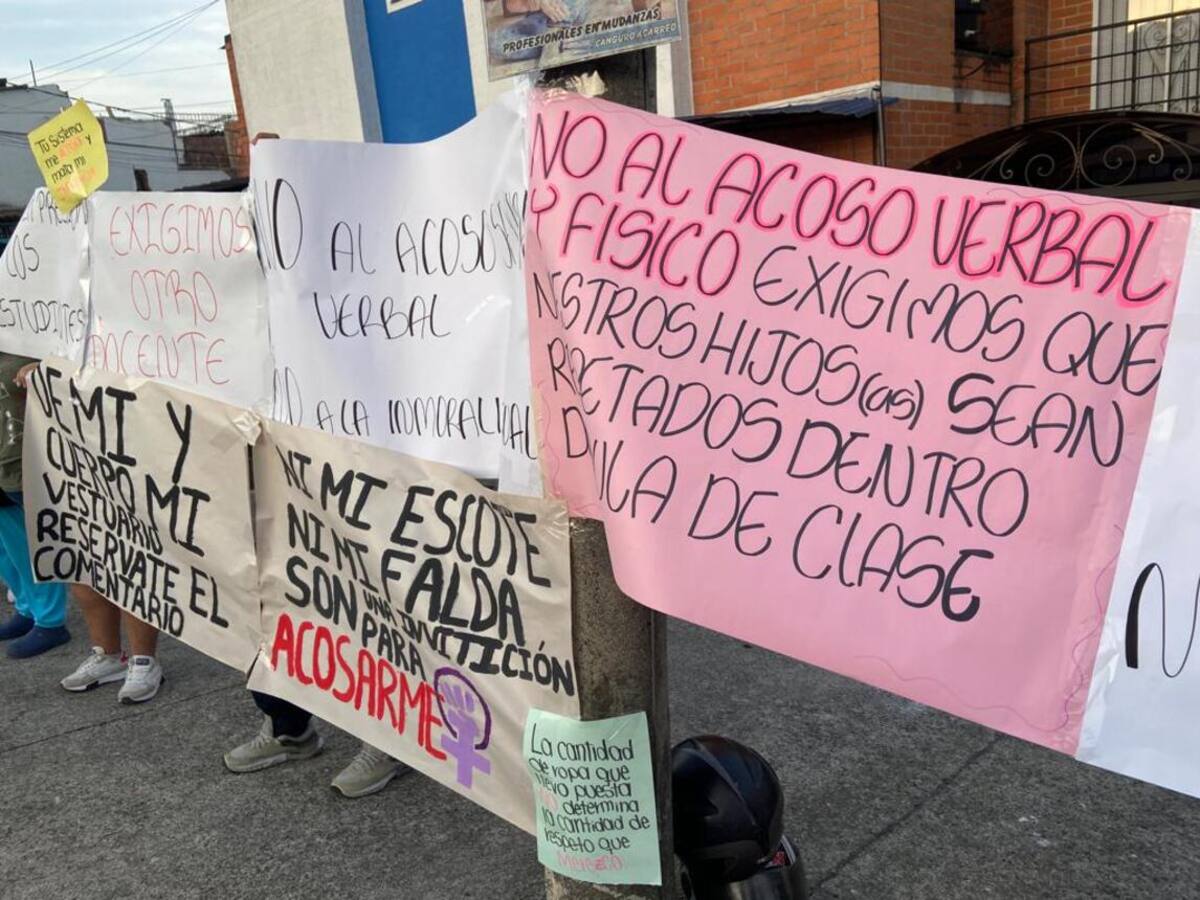 PROFESIONALES EN MUDANZAS
CANGURO ACARREO
Tu Sistema
me
y
mata mi
EXIGIMOS
OTRO
DOCENTE
NO AL ACOSO
VERBAL
NO A LA INMORALIDAD
NO AL ACOSO VERBAL
Y FISICO EXIGIMOS QUE
NESTROS HIJOS(as) SEAN
RESPETADOS DENTRO
D AULA DE CLASE
DE MI Y
CUERPO MI
VESTUARIO
RESERVATE EL
COMENTARIO
NI MI ESCOTE
NI MI FALDA
SON UNA INVITICIÓN
PARA
ACOSARME
La cantidad
de ropa que
llevo puesta
NO determina
la cantidad de
respeto que
Merezco
N